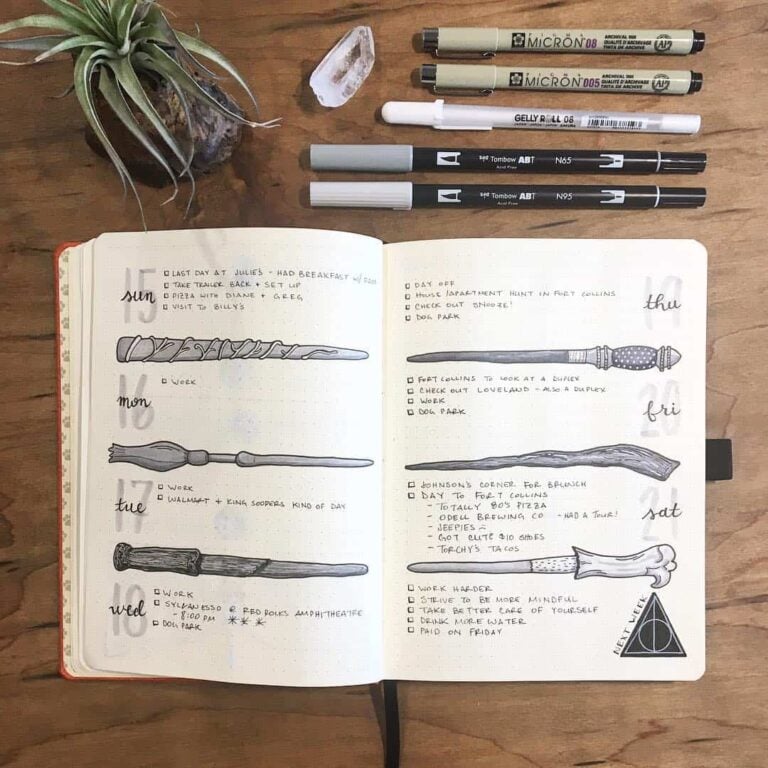 SAKURA
MICRON 08
ARCHIVAL INK
QUALITÉ D'ARCHIVE
TINTA DE ARCHIVE
MICRON 005
ARCHIVAL INK
QUALITÉ D'ARCHIVE
TINTA DE ARCHIVE
GELLY ROLL 08
Tombow ABT
Acid Free
N65
Tombow ABT
Acid Free
N95
15
sun
LAST DAY AT JULIE'S - HAD BREAKFAST W/
TAKE TRAILER BACK + SET UP
PIZZA WITH DIANE + GREG
VISIT TO BILLY'S
16
mon
WORK
17
tue
WORK
WALMART + KING SOOPERS KIND OF DAY
18
wed
WORK
SYLVAN ESSO @ RED ROCKS AMPHITHEATRE
- 8:00 PM ***
DOG PARK
19
thu
DAY OFF
HOUSE/APARTMENT HUNT IN FORT COLLINS
CHECK OUT SNOOZE!
DOG PARK
20
fri
FORT COLLINS TO LOOK AT A DUPLEX
CHECK OUT LOVELAND - ALSO A DUPLEX
WORK
DOG PARK
21
sat
JOHNSON'S CORNER FOR BRUNCH
DAY TO FORT COLLINS
- TOTALLY 80'S PIZZA
- ODELL BREWING CO - HAD A TOUR!
- JEEPIES
- GOT CUTE $10 SHOES
- TORCHY'S TACOS
WORK HARDER
STRIVE TO BE MORE MINDFUL
TAKE BETTER CARE OF YOURSELF
DRINK MORE WATER
PAID ON FRIDAY
NEXT WEEK